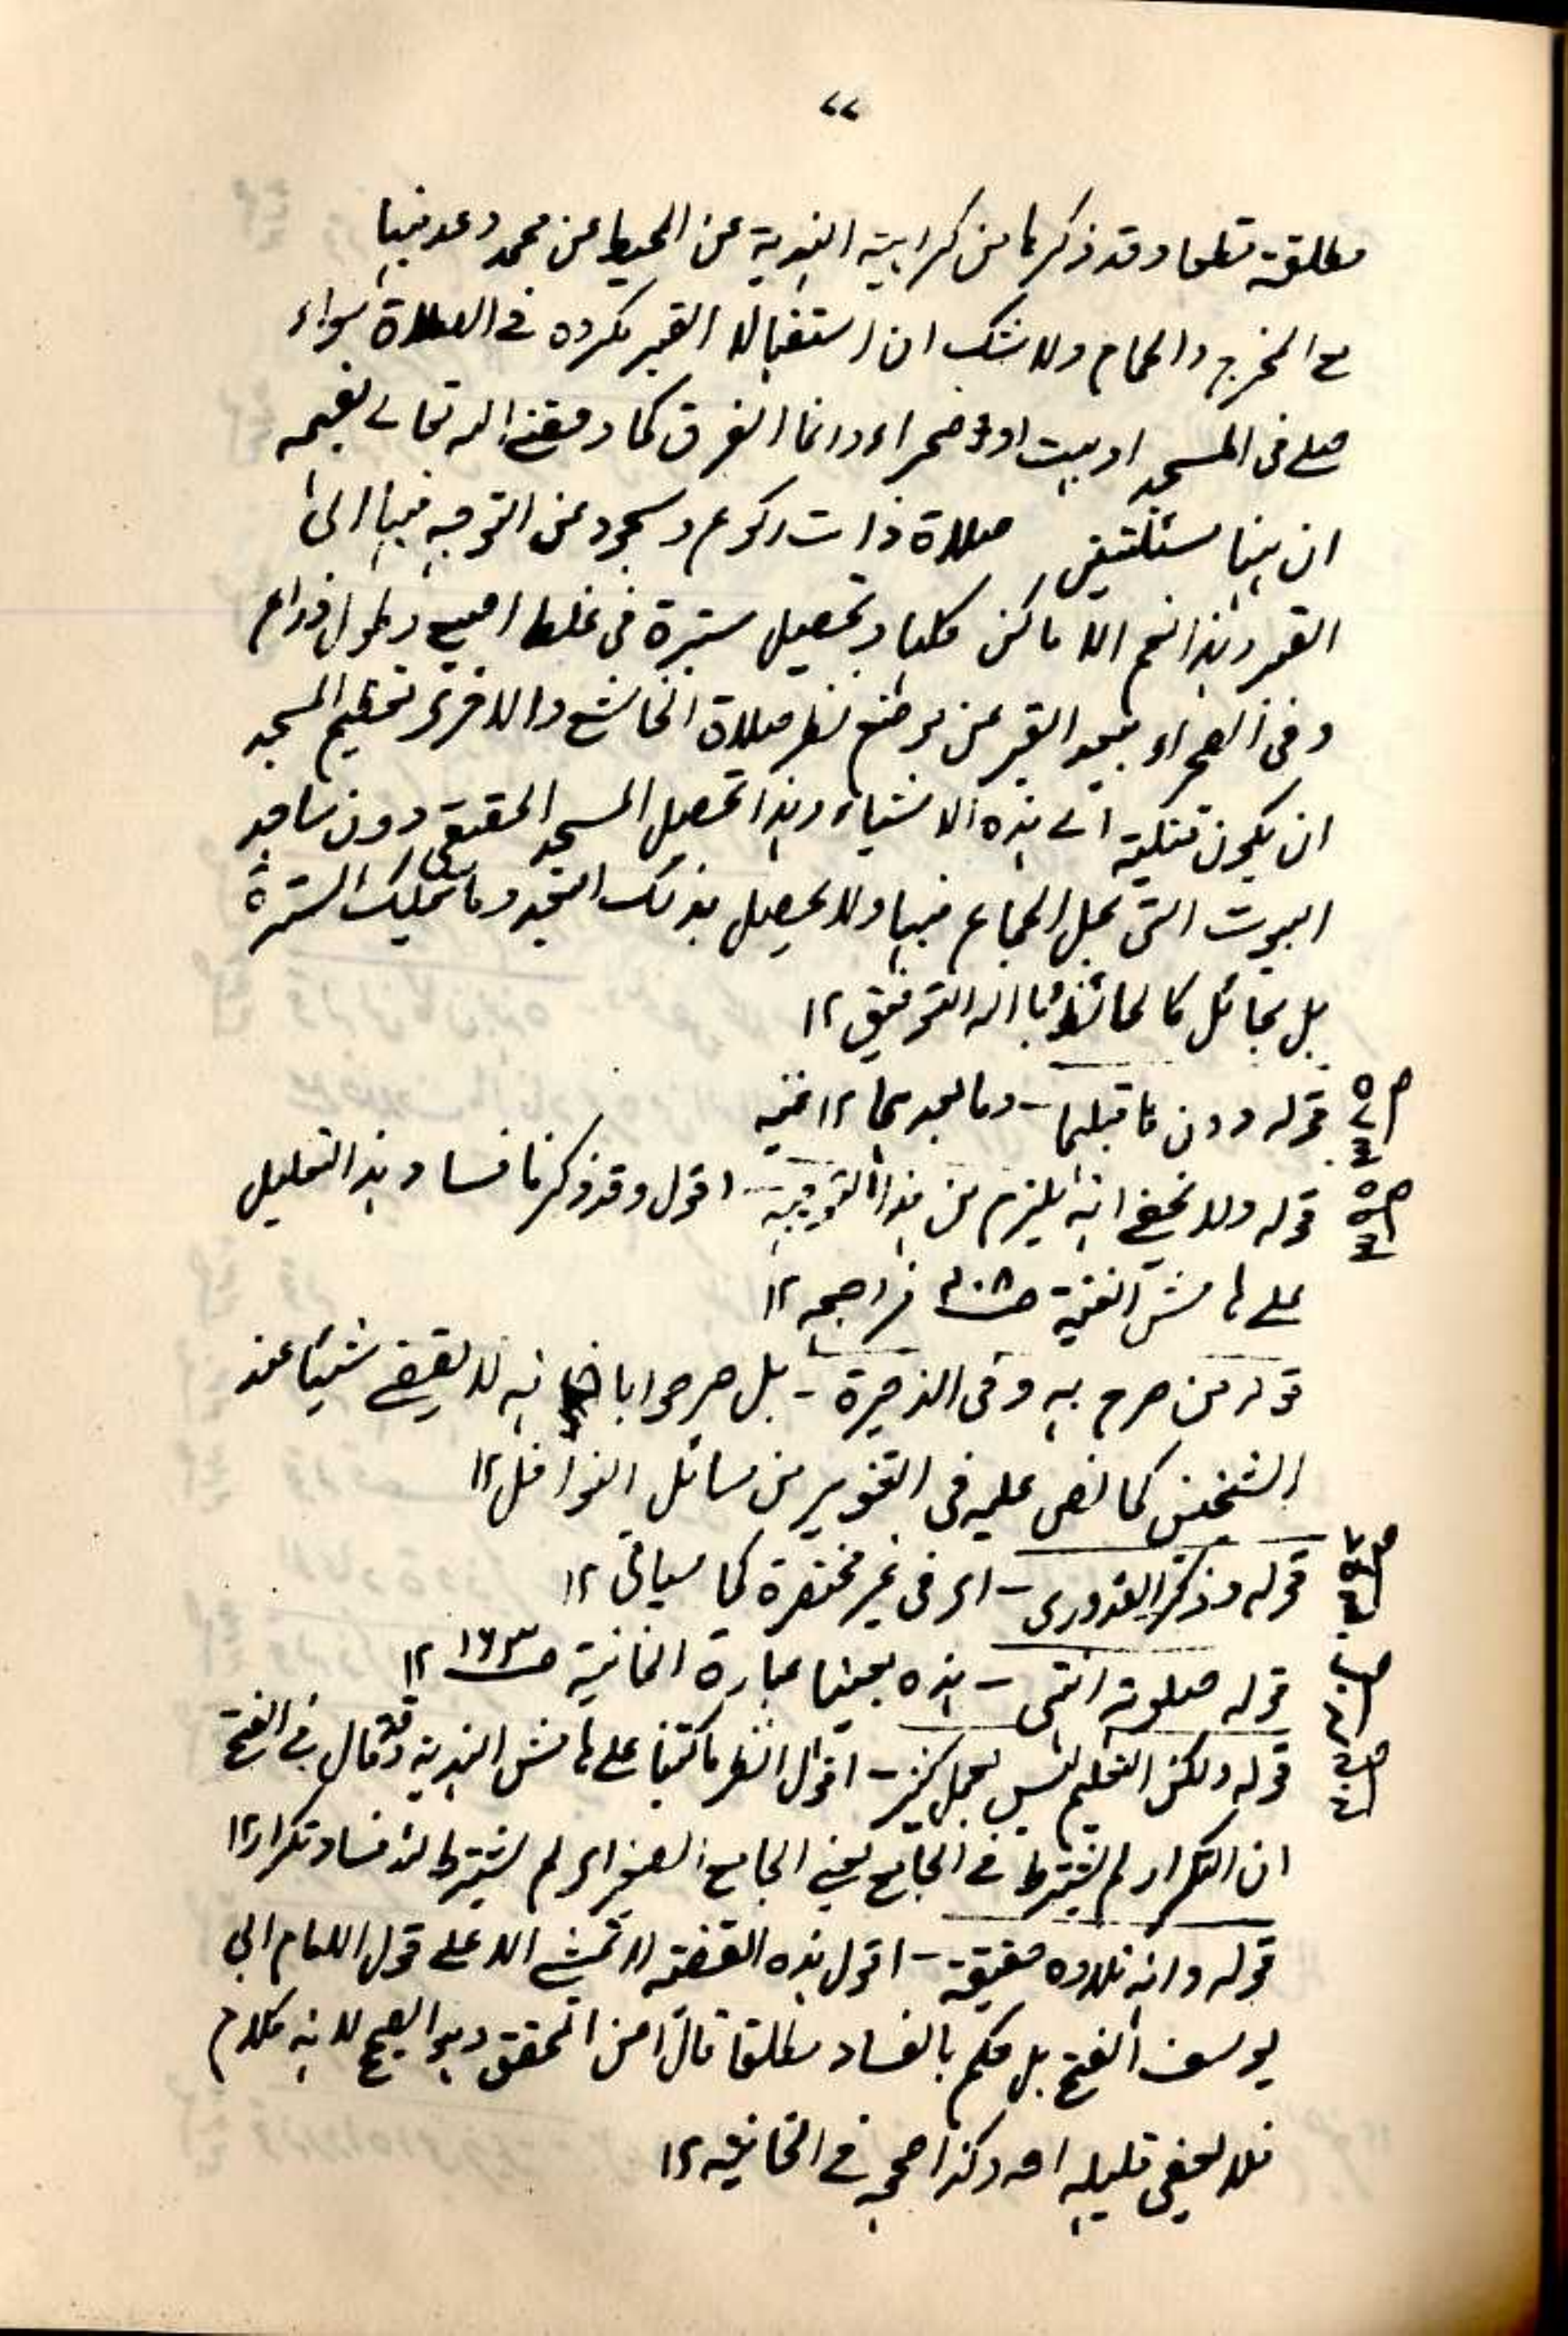 ٧٧
مطلقة قطعا وقد ذكرها من كراهية الهندية عن المحيط عن محمد وعد فيها
مع المخرج والحمام ولا شك ان استقبال القبر مكروه في الصلاة سواء
صلى في المسجد او بيت او صحراء وانما الفرق كما وفقني الله تعالى لفهمه
ان هنا مسئلتين صلاة ذات ركوع وسجود عن التوجه فيها الى
القبر وهذا نعم الاماكن كلها وتحصيل سترة في غلظ اصبع وطول ذراع
وفي الصحراء يبعد القبر عن موضع نظر صلاة الخاشع والاخرى تعظيم المسجد
ان يكون قبلته الى هذه الاشياء وهذا تحصيل المسجد الحقيقي دون مساجد
البيوت التي يحل الجماع فيها ولا يحصل بذلك التجدد وما تمليك السترة
بل بحائل كالحائط وبالله التوفيق ١٢
قوله دون ما قبلها – وما بعدها ١٢ غنيه
قوله ولا يخفى انه يلزم من هذا التوجيه – اقول وقد ذكرنا فساد هذا التعليل
على هامش الغنية ص ٣٠٨ فراجعه ١٢
قوله من صرح به وفي الذخيرة – بل صرحوا بانه لا يقضي شيئا عند
الشيخين كما نص عليه في التنوير من مسائل النوافل ١٢
قوله وذكر القدوري – اى في غير مختصره كما سيأتى ١٢
قوله صلوته انتهى – هذه بعينها عبارة الخانية ص ١٦٣ ١٢
قوله ولكن التعليم ليس بعمل كثير – اقول انظر ما كتبنا على هامش الهندية وقد قال في الفتح
ان التكرار لم يشترط في الجامع يعني الجامع الصغير اى لم يشترط للافساد تكرارا ١٢
قوله وانه تلاوة حقيقة – اقول هذه القضية لا تمشي الا على قول الامام ابي
يوسف الفتح بل حكم بالفساد مطلقا قال امن المحقق وهو الصحيح لانه كلام
فلا يعفى قليله اھ وكذا صححه في الخانيه ١٢